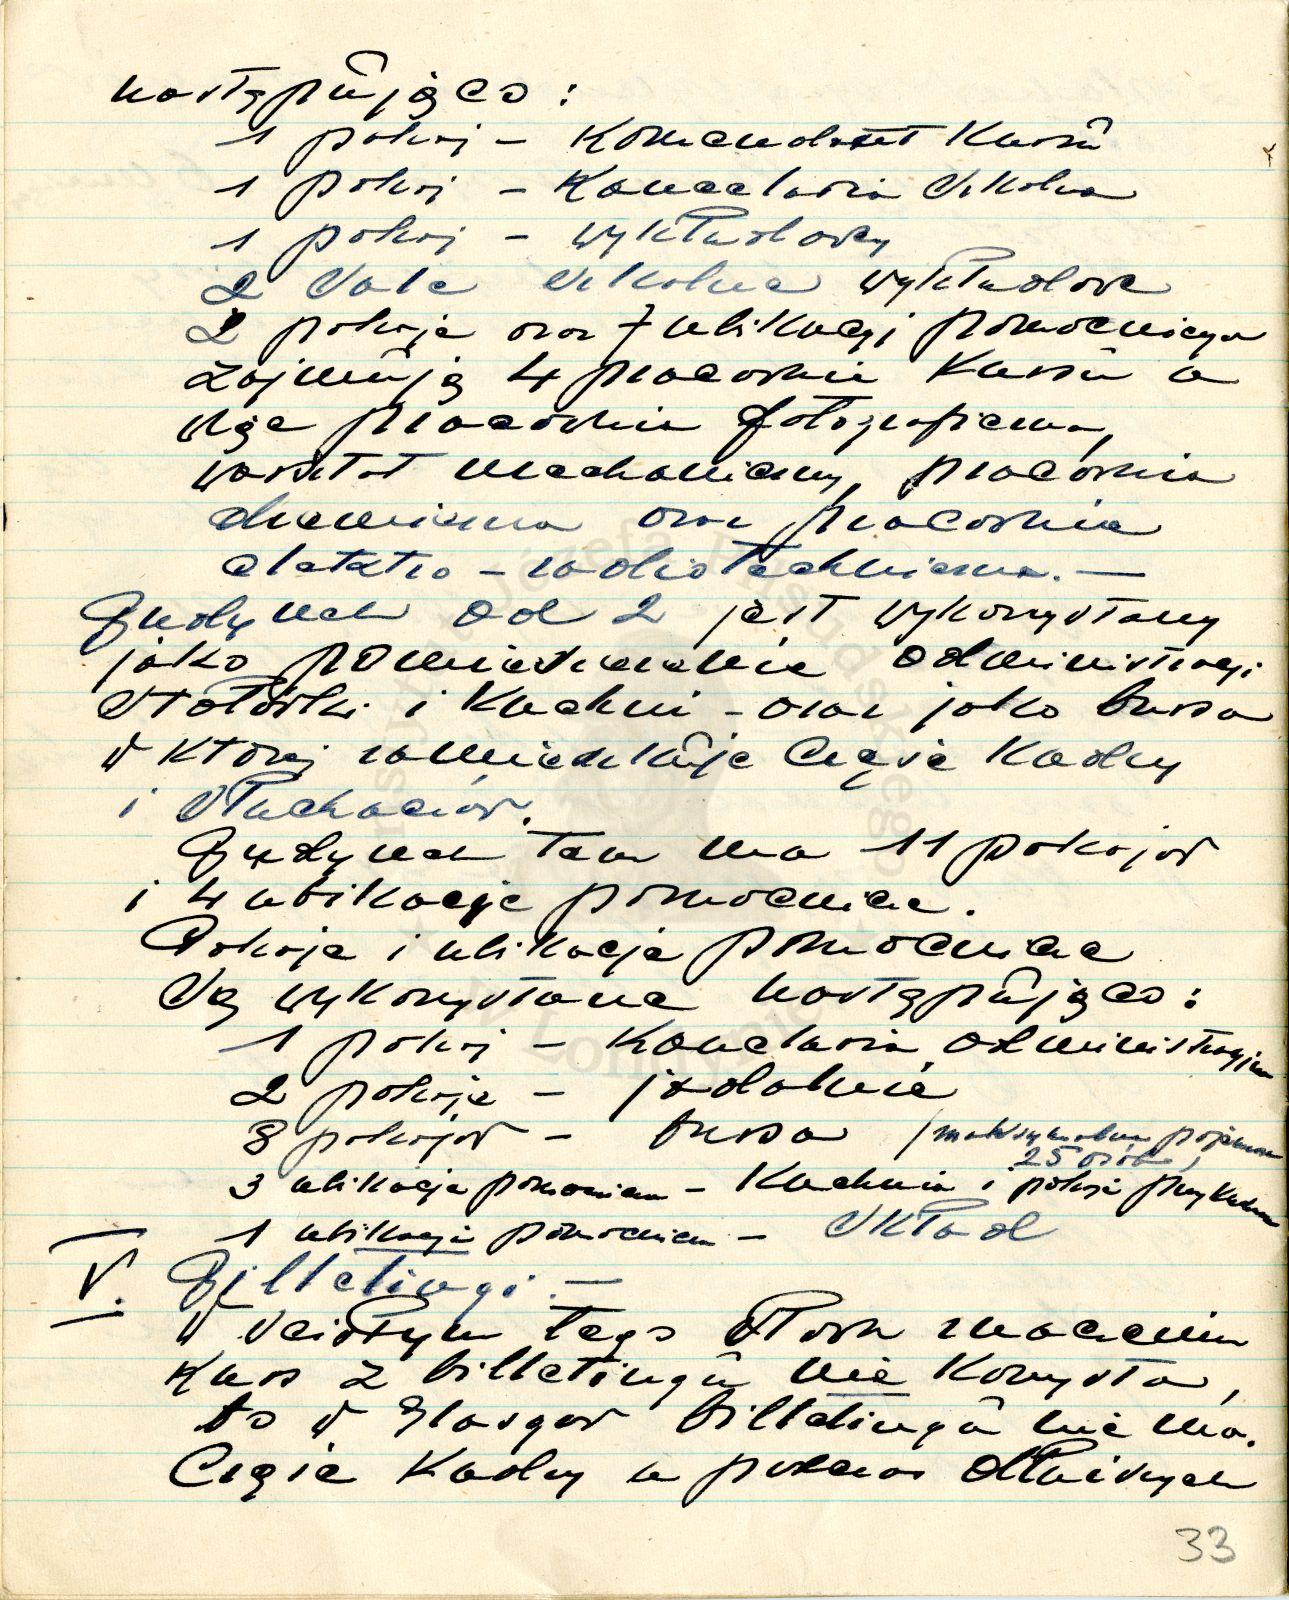 następująco:
1 pokój - Komendant Kursu
1 pokój - Kancelaria Szkolna
1 pokój - wykładowcy
2 sale szkolne wykładowe
2 pokoje oraz 7 ubikacyj pomocniczych
zajmują 4 pracownie Kursu a
więc pracownia fotograficzna,
warsztat mechaniczny, pracownia
chemiczna oraz pracownia
elektro-radiotechniczna. —
Budynek od 2 jest wykorzystany
jako pomieszczenie administracji
stołówki i kuchni - oraz jako bursa
w której zamieszkuje część kadry
i słuchaczów.
Budynek ten ma 11 pokojów
i 4 ubikacje pomocnicze.
Pokoje i ubikacje pomocnicze
są wykorzystane następująco:
1 pokój - Kancelaria administracyjna
2 pokoje - jadalnie
8 pokojów - bursa /maksymalna pojemn
25 osób/
3 ubikacje pomocnicze - kuchnia i pokoje przy kuchni
1 ubikacja pomocnicza - skład
V. Billetingi. —
W ścisłym tego słowa znaczeniu
kurs z billetingu nie korzysta,
bo w Glasgow billetingu nie ma.
Część kadry a podczas dłuższych
33
Instytut Józefa Piłsudskiego
w Londynie